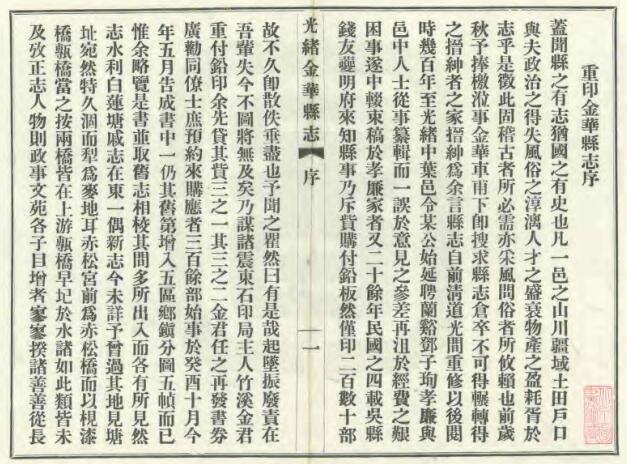 重印金華縣志序
蓋聞縣之有志猶國之有史也凡一邑之山川疆域土田戶口
與夫政治之得失風俗之淳漓人才之盛衰物產之盈耗胥於
志乎是徵此固稽古者所必需亦采風問俗者所攸賴也前歲
秋予捧檄涖事金華車甫下卽搜求縣志倉卒不可得輾轉得
之搢紳者之家搢紳爲余言縣志自前清道光間重修以後閱
時幾百年至光緒中葉邑令某公始延聘蘭谿鄧子珣孝廉與
邑中人士從事纂輯而一誤於意見之參差再沮於經費之艱
困事遂中輟束稿於孝廉家者又二十餘年民國之四載吳縣
錢友夔明府來知縣事乃斥貲購付鉛板然僅印二百數十部
光緒金華縣志 序 一
故不久卽散佚垂盡也予聞之瞿然曰有是哉起墜振廢責在
吾輩失今不圖將無及矣乃謀諸震東石印局主人竹溪金君
重付鉛印余先貸其貲三之一其三之二金君任之再發書劵
廣勸同僚士庶預約來購應者三百餘部始事於癸酉十月今
年五月告成書中一仍其舊第增入五區鄉鎭分圖五幀而已
惟余略覽是書並取舊志相校其間多所出入而各有所見然
志水利白蓮塘戚志在東一偶新志今未詳予曾過其地見塘
址宛然特久涸而犁爲麥地耳赤松宮前爲赤松橋而以梘漆
橋甎橋當之按兩橋皆在上游甎橋早圮於水諸如此類皆未
及攷正志人物則政事文苑各子目增者寥寥揆諸善善從長